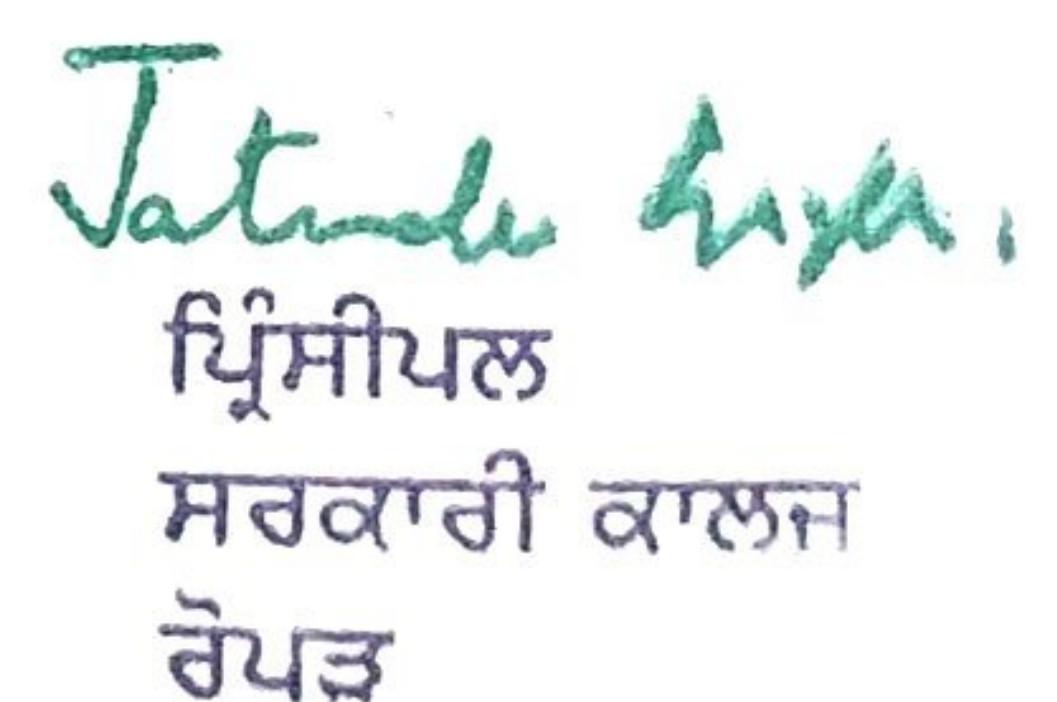 Jatinder
ਪ੍ਰਿੰਸੀਪਲ
ਸਰਕਾਰੀ ਕਾਲਜ
ਰੋਪੜ